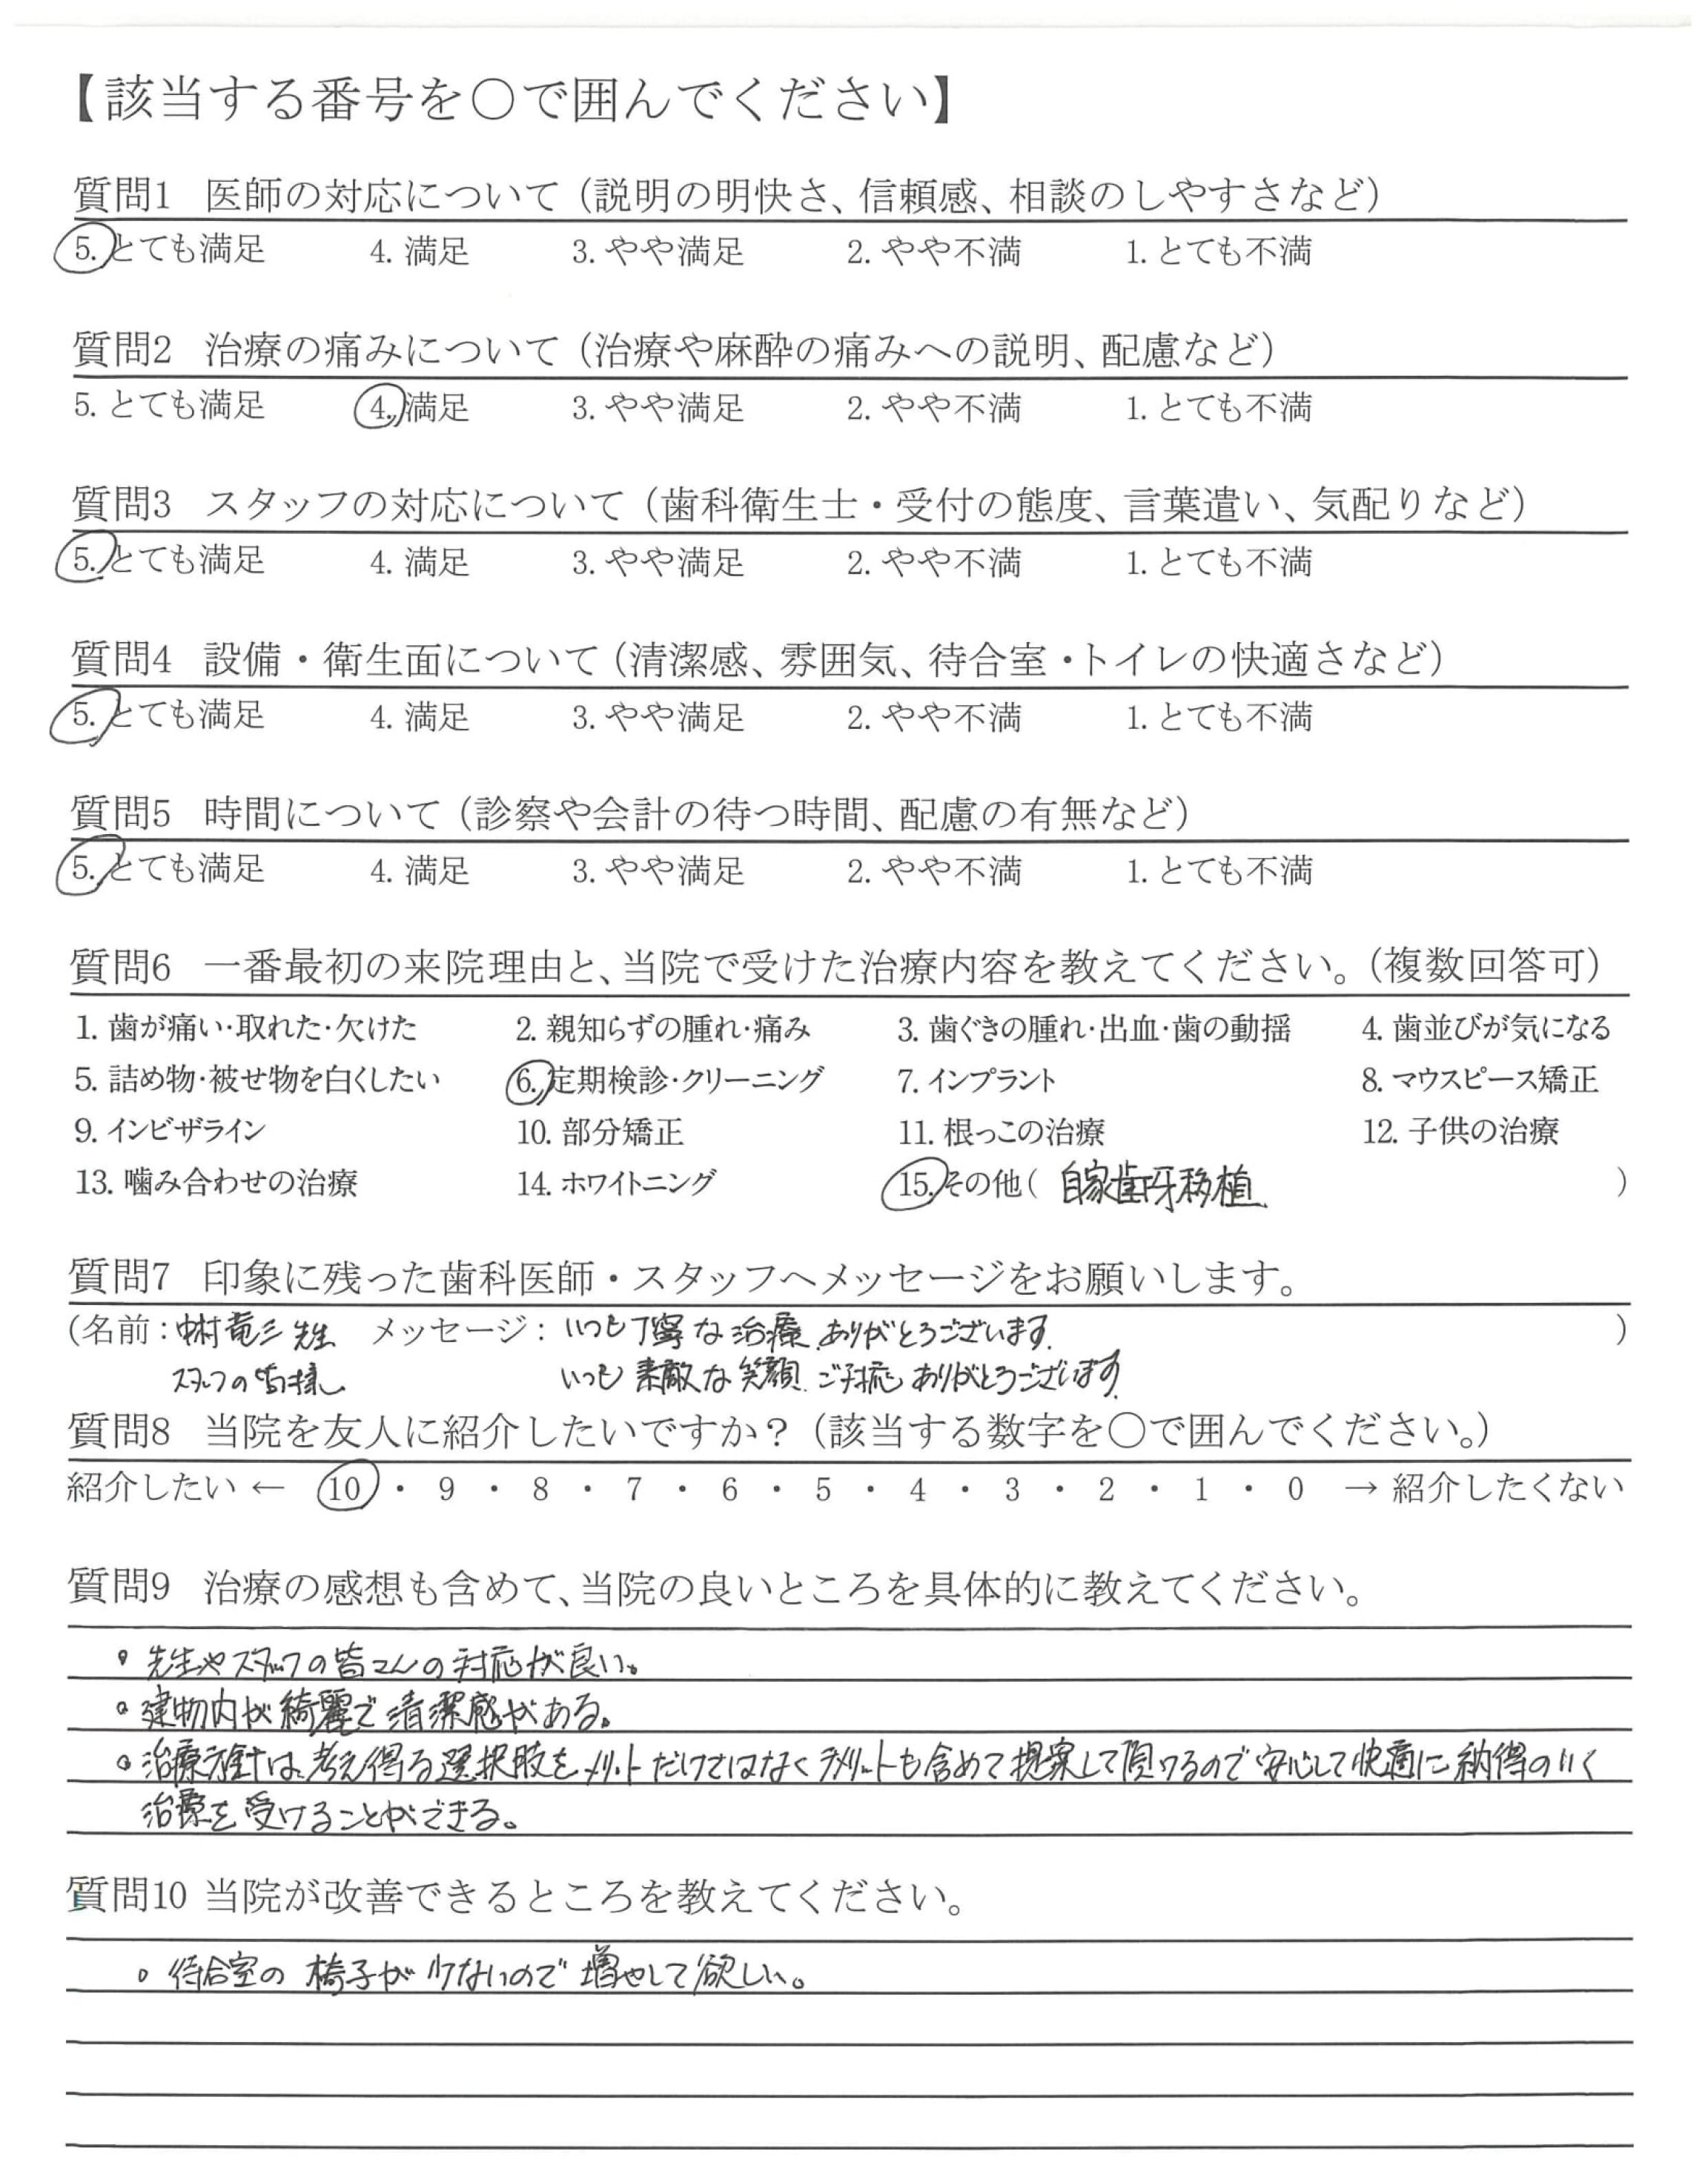 【該当する番号を〇で囲んでください】
質問1 医師の対応について（説明の明快さ、信頼感、相談のしやすさなど）
5. とても満足 4. 満足 3. やや満足 2. やや不満 1. とても不満
質問2 治療の痛みについて（治療や麻酔の痛みへの説明、配慮など）
5. とても満足 4. 満足 3. やや満足 2. やや不満 1. とても不満
質問3 スタッフの対応について（歯科衛生士・受付の態度、言葉遣い、気配りなど）
5. とても満足 4. 満足 3. やや満足 2. やや不満 1. とても不満
質問4 設備・衛生面について（清潔感、雰囲気、待合室・トイレの快適さなど）
5. とても満足 4. 満足 3. やや満足 2. やや不満 1. とても不満
質問5 時間について（診察や会計の待つ時間、配慮の有無など）
5. とても満足 4. 満足 3. やや満足 2. やや不満 1. とても不満
質問6 一番最初の来院理由と、当院で受けた治療内容を教えてください。（複数回答可）
1. 歯が痛い・取れた・欠けた 2. 親知らずの腫れ・痛み 3. 歯ぐきの腫れ・出血・歯の動揺 4. 歯並びが気になる
5. 詰め物・被せ物を白くしたい 6. 定期検診・クリーニング 7. インプラント 8. マウスピース矯正
9. インビザライン 10. 部分矯正 11. 根っこの治療 12. 子供の治療
13. 噛み合わせの治療 14. ホワイトニング 15. その他（ 自家歯牙移植 ）
質問7 印象に残った歯科医師・スタッフへメッセージをお願いします。
（名前：中村竜三先生 メッセージ：いつも丁寧な治療、ありがとうございます。）
スタッフの皆様 いつも素敵な笑顔、ご対応ありがとうございます。
質問8 当院を友人に紹介したいですか？（該当する数字を〇で囲んでください。）
紹介したい ← 10 ・ 9 ・ 8 ・ 7 ・ 6 ・ 5 ・ 4 ・ 3 ・ 2 ・ 1 ・ 0 → 紹介したくない
質問9 治療の感想も含めて、当院の良いところを具体的に教えてください。
。先生やスタッフの皆さんの対応が良い。
。建物内が綺麗で清潔感がある。
。治療方針は、考え得る選択肢をメリットだけではなくデメリットも含めて提案して頂けるので安心して快適に納得のいく
治療を受けることができる。
質問10 当院が改善できるところを教えてください。
。待合室の椅子が少ないので増やして欲しい。